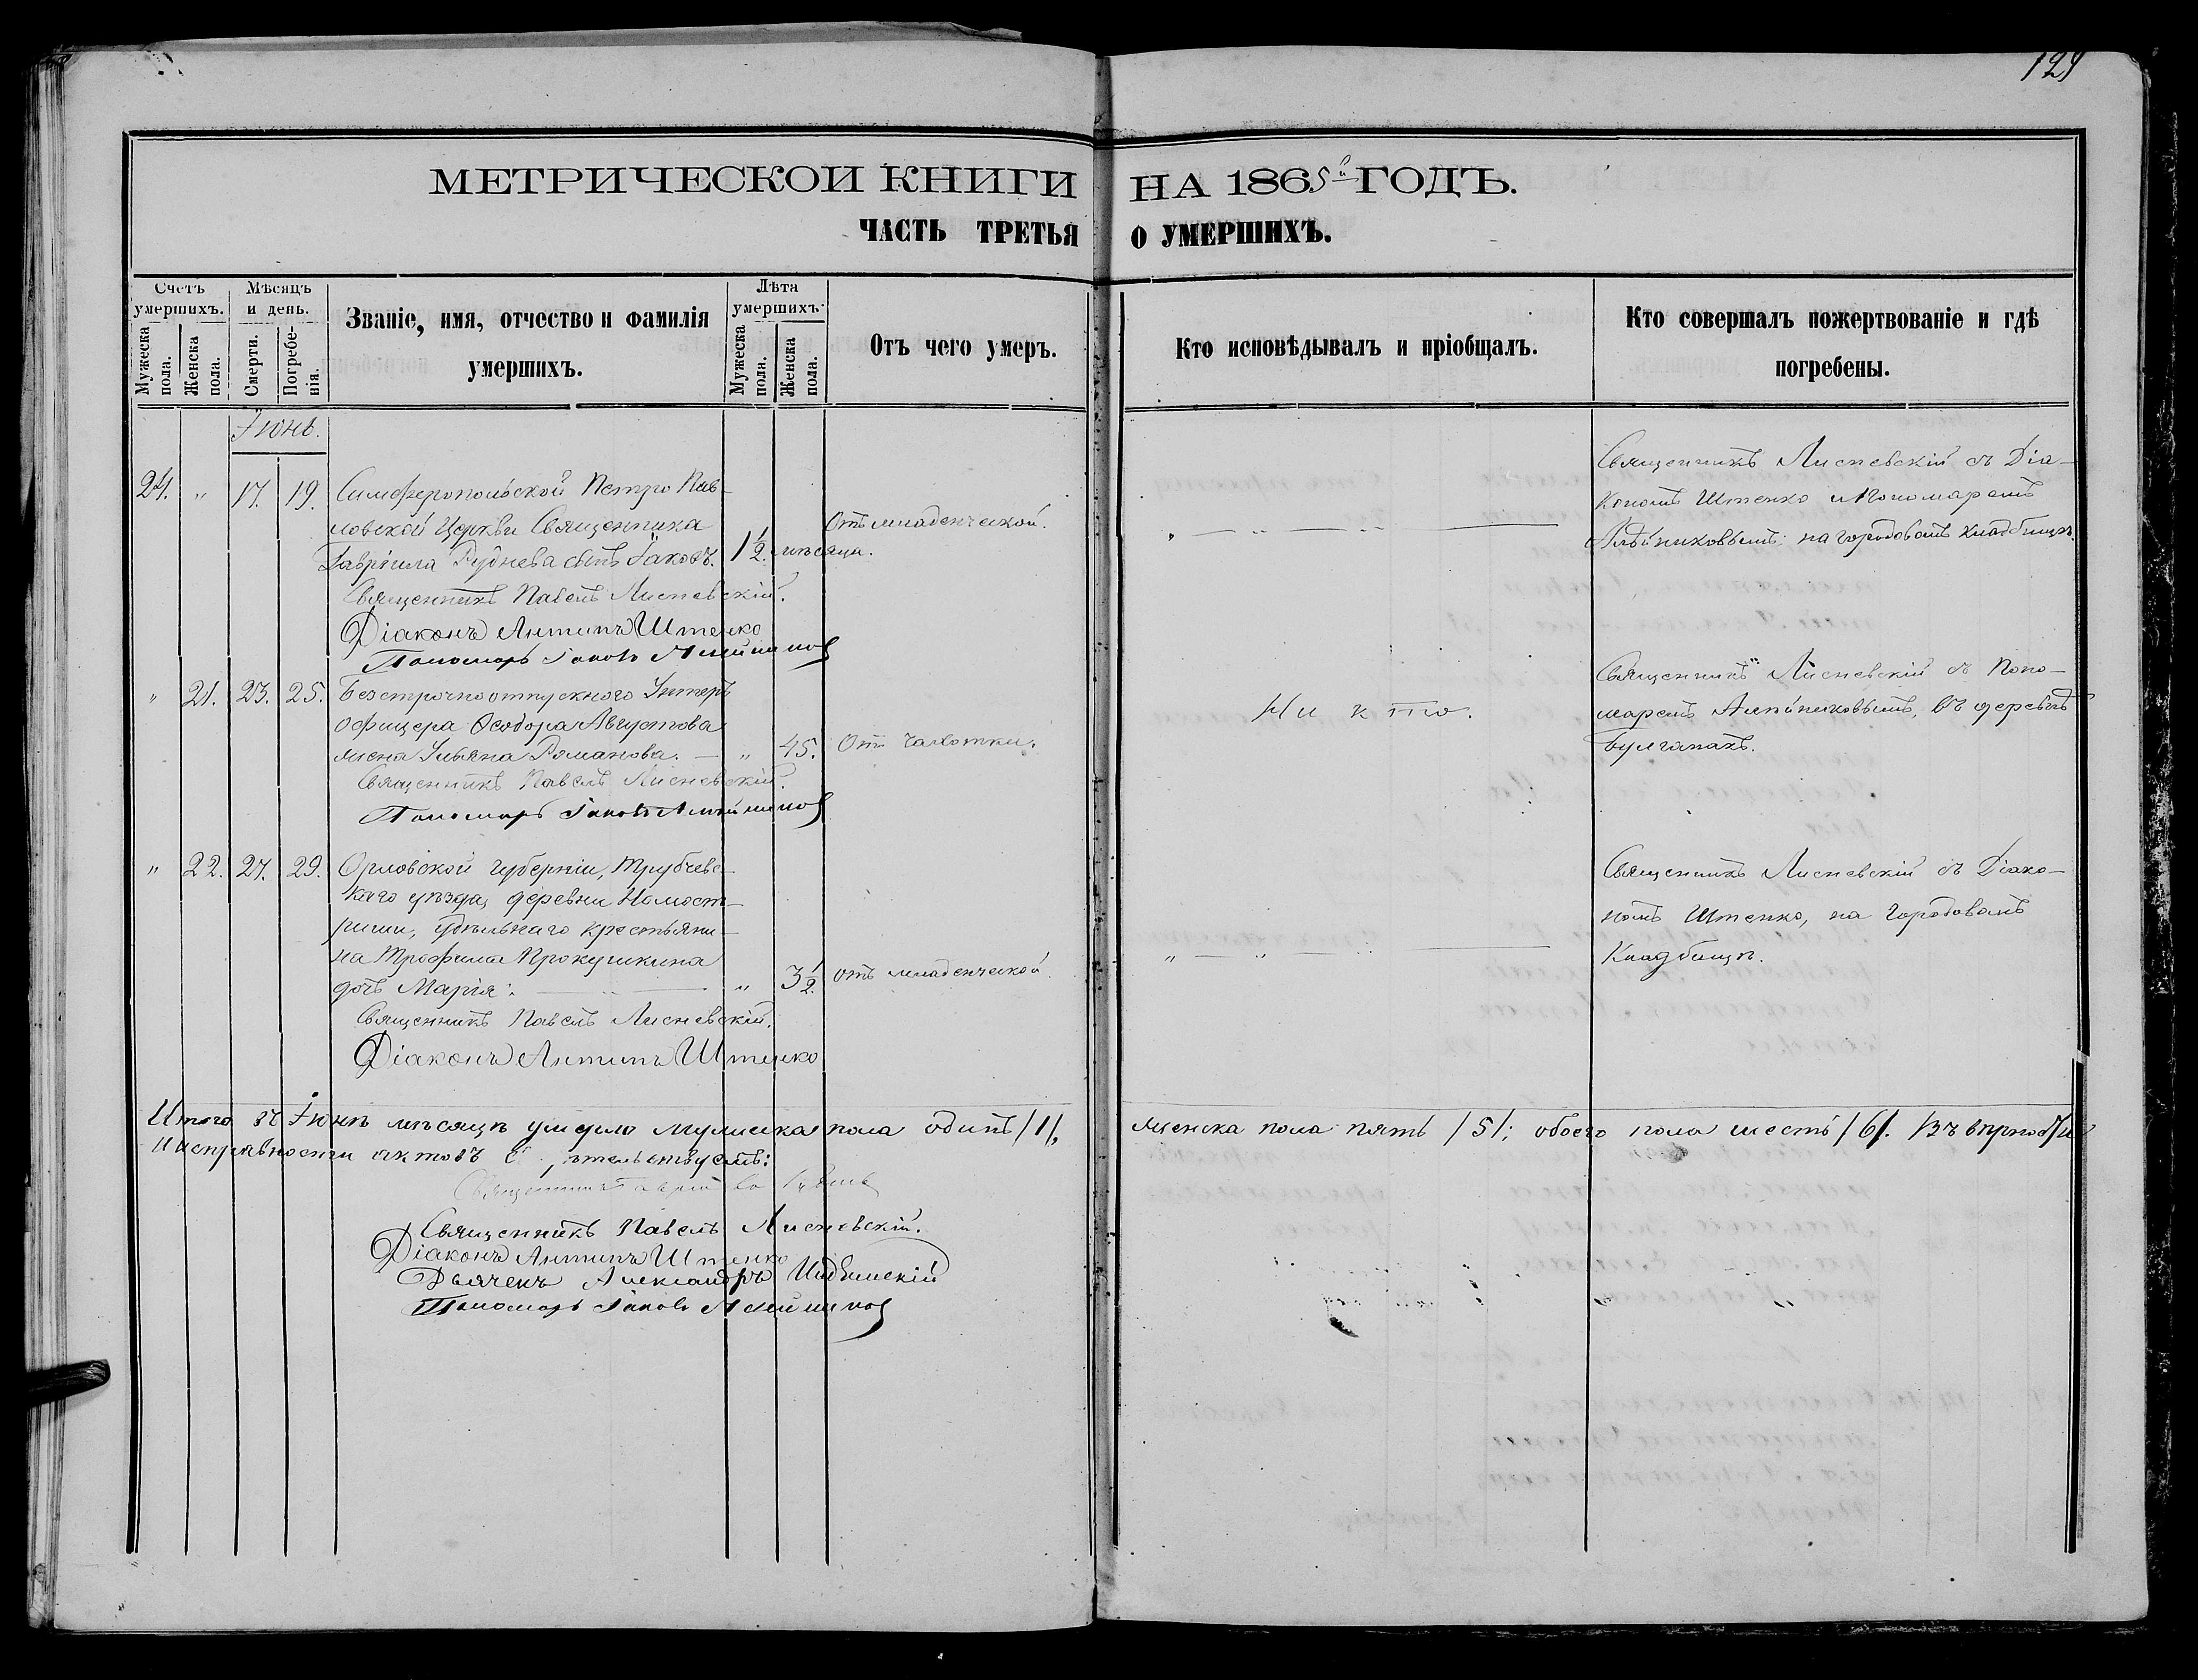 129
МЕТРИЧЕСКОЙ КНИГИ НА 1865й ГОДЪ.
ЧАСТЬ ТРЕТЬЯ О УМЕРШИХЪ.
Счетъ умершихъ.
Мужеска пола.
Женска пола.
Мѣсяцъ и день.
Смерти.
Погребенія.
Званіе, имя, отчество и фамилія
умершихъ.
Лѣта умершихъ.
Мужеска пола.
Женска пола.
Отъ чего умеръ.
Кто исповѣдывалъ и пріобщалъ.
Кто совершалъ пожертвованіе и гдѣ
погребены.
Іюнь.
24. " 17. 19. Симферопольской Петро Пав-
ловской Церкви Священника
Гавріила Руднева сынъ Іаковъ. 1 1/2 мѣсяца.
Отъ младенческой.
Священникъ Лисневскій съ Діа-
кономъ Штенко и Пономаремъ
на городовомъ кладбищѣ.
Священникъ Павелъ Лисневскій.
Діаконъ Антипъ Штенко
Пономарь Іаковъ
" 21. 23. 25. Безсрочноотпускного Унтеръ
офицера Ѳеодора Августова
жена Ульяна Романова. — " 45. Отъ чахотки.
Ни кто.
Священникъ Лисневскій съ Поно-
маремъ въ деревнѣ
Булганакъ.
Священникъ Павелъ Лисневскій.
Пономарь Іаковъ
" 22. 27. 29. Орловской губерніи, Трубчевс-
каго уѣзда, деревни
удѣльнаго крестьяни-
на Трофима Прокушкина
дочь Марія. " 3 1/2 отъ младенческой.
Священникъ Лисневскій съ Діако-
номъ Штенко, на городовомъ
Кладбищѣ.
Священникъ Павелъ Лисневскій.
Діаконъ Антипъ Штенко
Итого въ Іюнѣ мѣсяцѣ умерло мужеска пола одинъ /1/, женска пола пять /5/; обоего пола шесть /6/. Въ вѣрности
и исправности актовъ
Священникъ
Священникъ Павелъ Лисневскій.
Діаконъ Антипъ Штенко
Дьячекъ Александръ
Пономарь Іаковъ